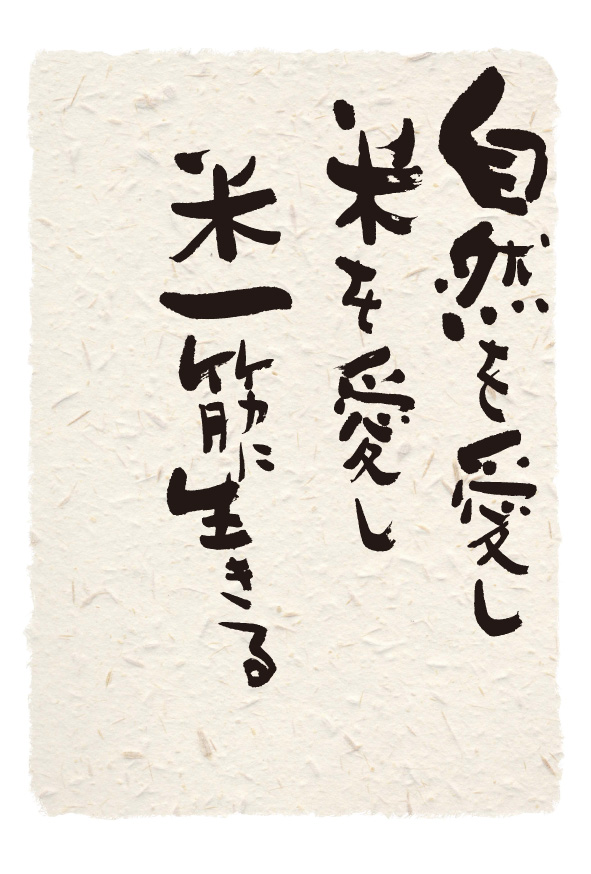 自然を愛し
米を愛し
米一筋に生きる